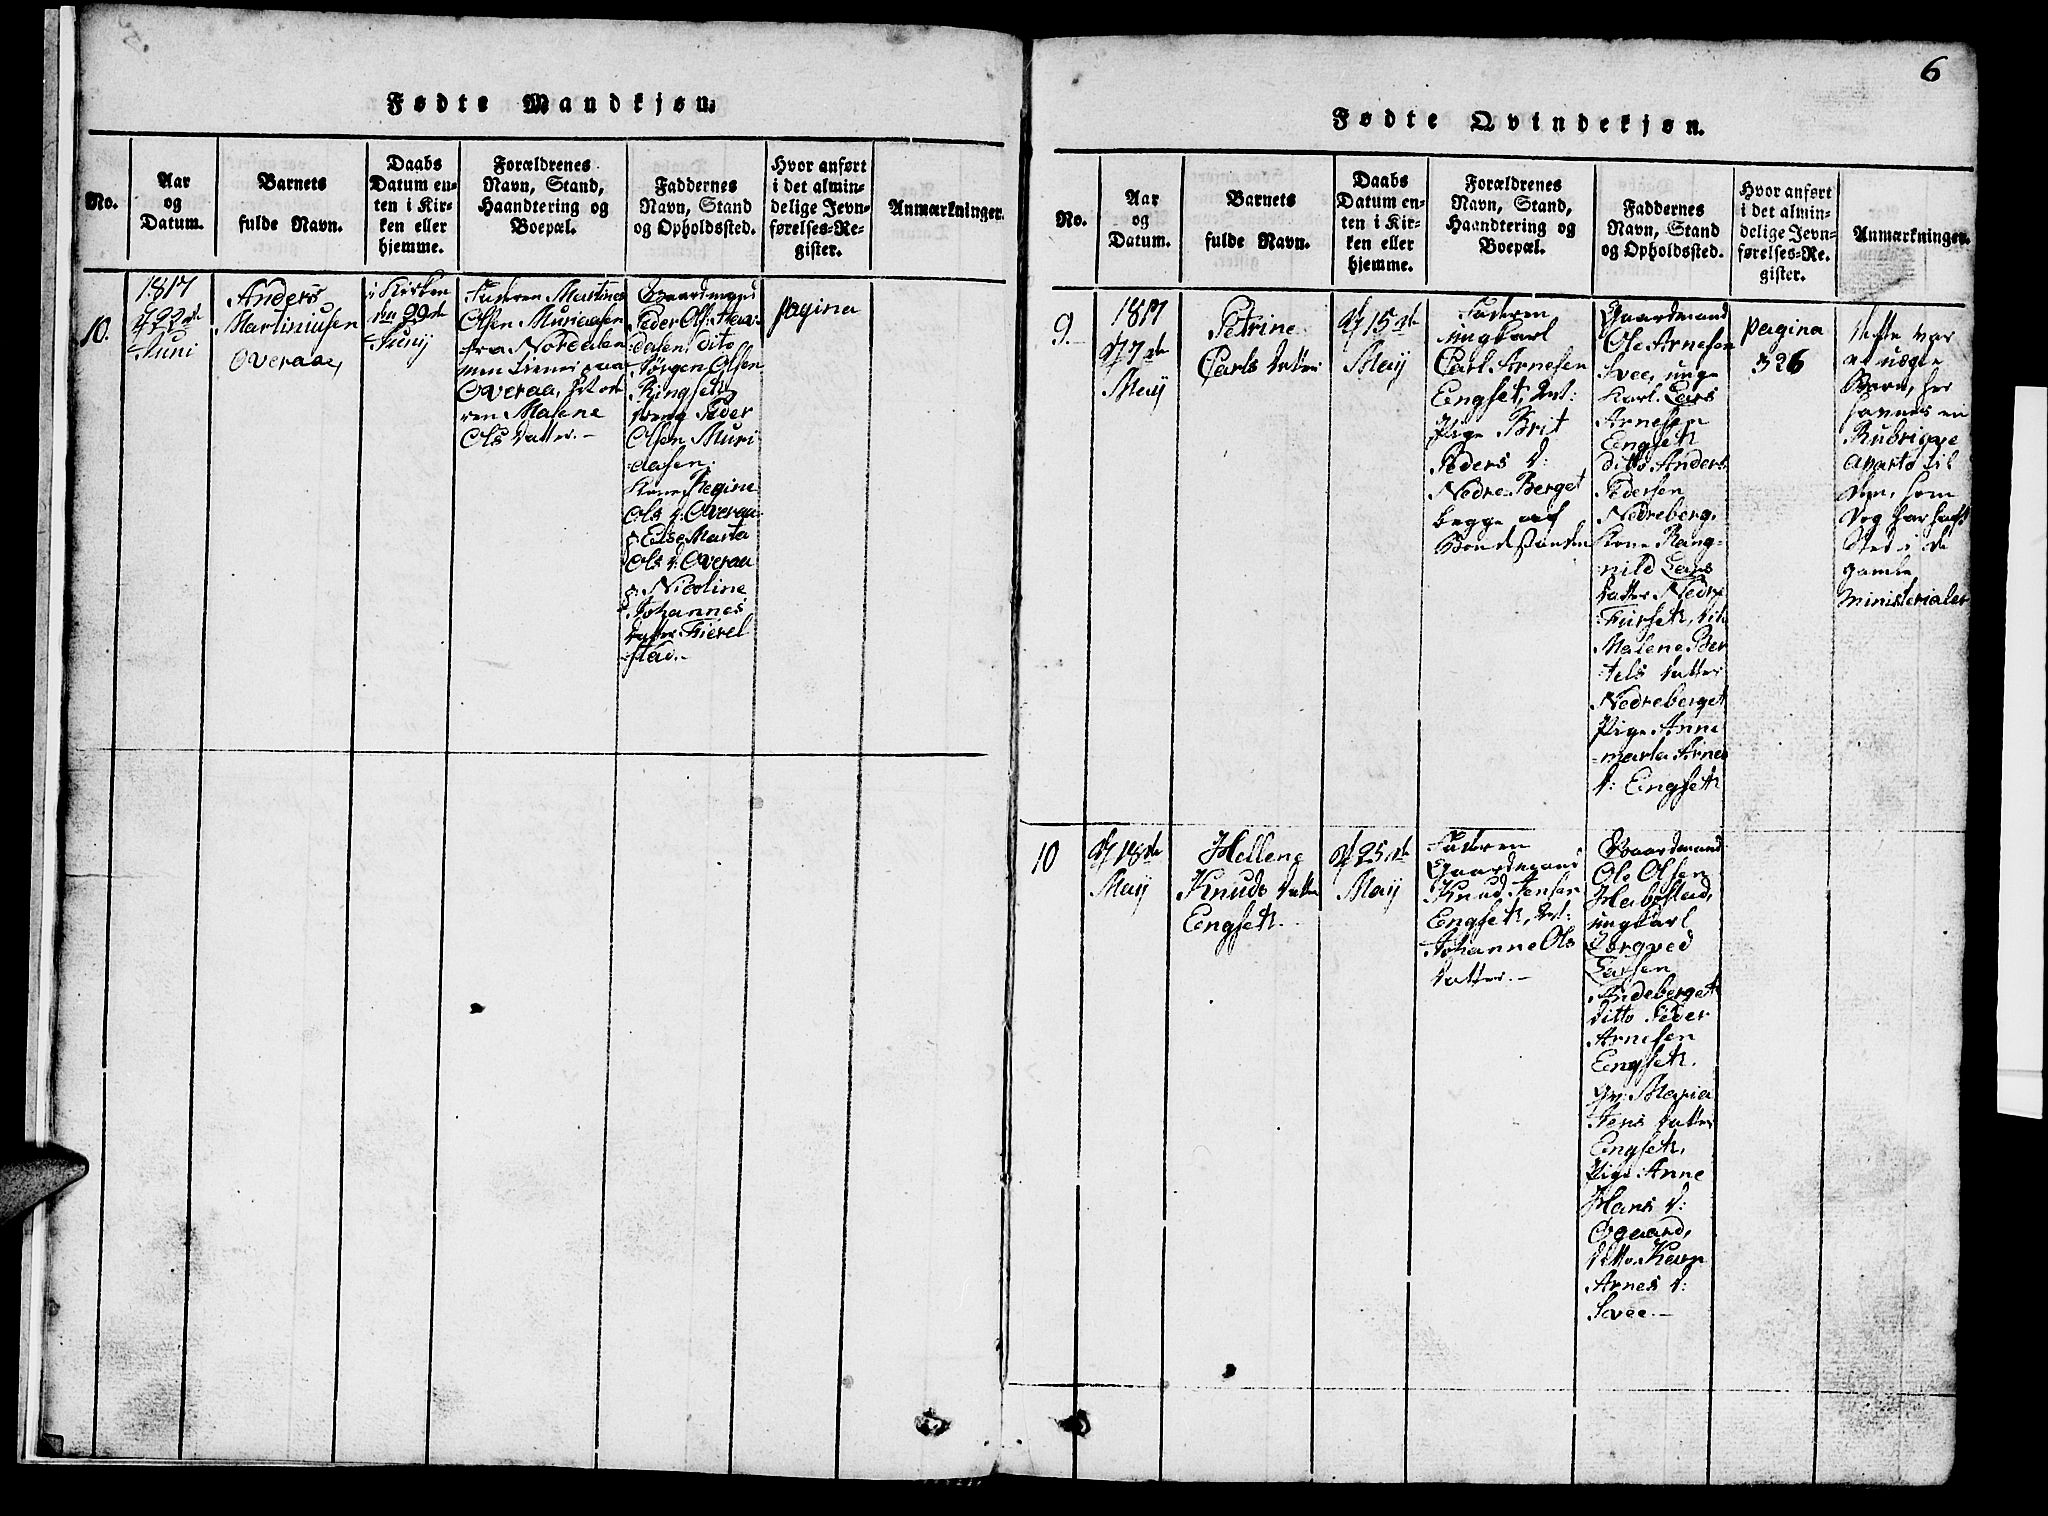 6
Fødte Mandkjøn.
No.
Aar
og
Datum.
Barnets
fulde Navn.
Daabs
Datum en-
ten i Kir-
ken eller
hjemme.
Forældrenes
Navn, Stand,
Haandtering og
Boepæl.
Faddernes
Navn, Stand
og Opholdssted.
Hvor anført
i det almin-
delige Jevn-
førelses-Re-
gister.
Anmærkninger.
10.
1817
22de
Juni
Anders
Martiniusen
Overaae,
i Kirken
den 29de
Junij
Faderen Martinus
Olsen Muriaasen
fra Nordalen
men tiener paa
Overaa,
Malene
Ols datter.-
Gaardmand
Peder Ols:
dalen, dito
Jørgen Olsen
Ringseth,
Peder
Olsen Muri
aasen.
Kone Regine
Ols d: Overaa
Else Marta
Ols d: Overaa
Nicoline
Johannes
datter Fierel
stad.-
pagina
Fødte Qvindekjøn.
No.
Aar
og
Datum.
Barnets
fulde Navn.
Daabs
Datum en-
ten i Kir-
ken eller
hjemme.
Forældrenes
Navn, Stand,
Haandtering og
Boepæl.
Faddernes
Navn, Stand
og Opholdssted.
Hvor anført
i det almin-
delige Jevn-
førelses-Re-
gister.
Anmærkninger.
9.
1817
7de
Maij
Petrine
Carls datter
15de
Maij
Faderen
ungkarl
Carl Arnesen
Engset,
Pige Brit
Peders d:
Nedre Berget
begge af
Bondestanden
Gaardmand
Ole Arnesen
Svee, unge
Karl Lars
Arnesen
Engseth
ditto Anders
Pedersen
Nedreberg,
Kone Rang-
nild Lars
datter Nedre
Furseth,
Malene Ber
tels datter
Nedreberget
Pige Anne
marta Arnes
d: Engseth
pagina
326
dette var
et uægte
Barn, her
savnes en
Rubriqve
aparte til
dem, som
dog har havt
Sted i de
gamle
Ministerialer
10
18de
Maij
Hellene
Knuds datter
Engseth.
25de
Maij
Faderen
Gaardmand
Knud Jensen
Engseth,
Johanne Ols
datter.-
Gaardmand
Ole Olsen
Habostad,
ungkarl
Larsen
Indeberget
ditto Peder
Arnesen
Engseth.
Maria
Jens datter
Engseth,
Pige Anne
Hans d:
Øgaard,
ditto Karen
Arnes d:
Svee.-